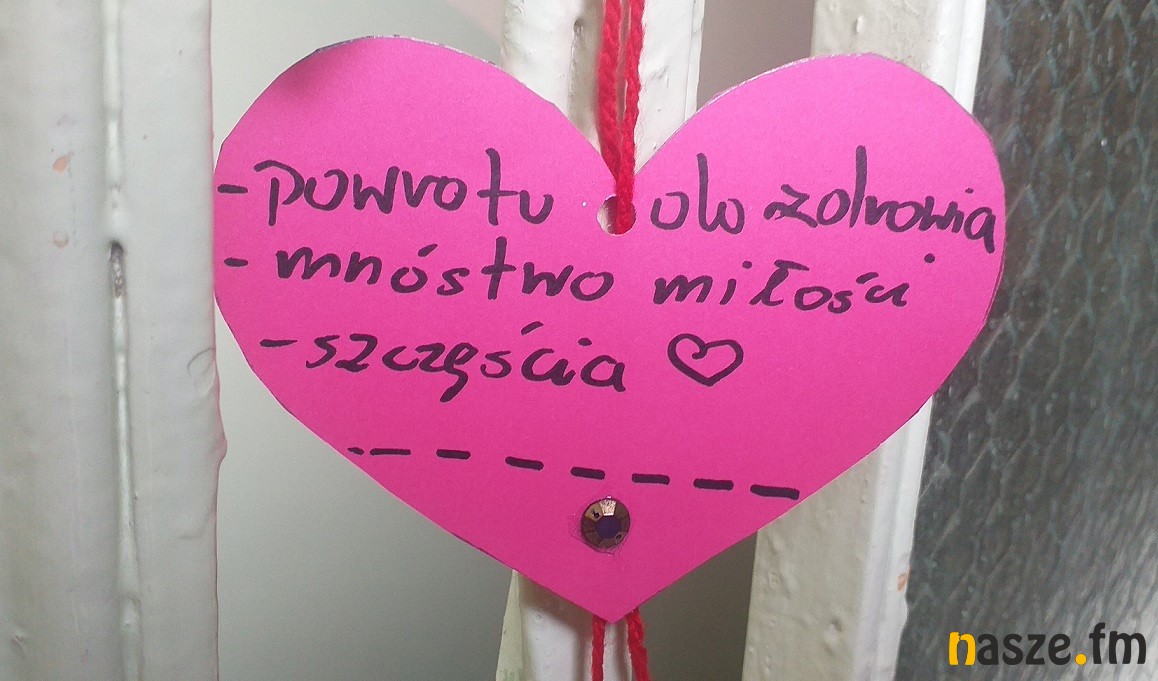 - powrotu do zdrowia
- mnóstwo miłości
- szczęścia ♡
nasze.fm